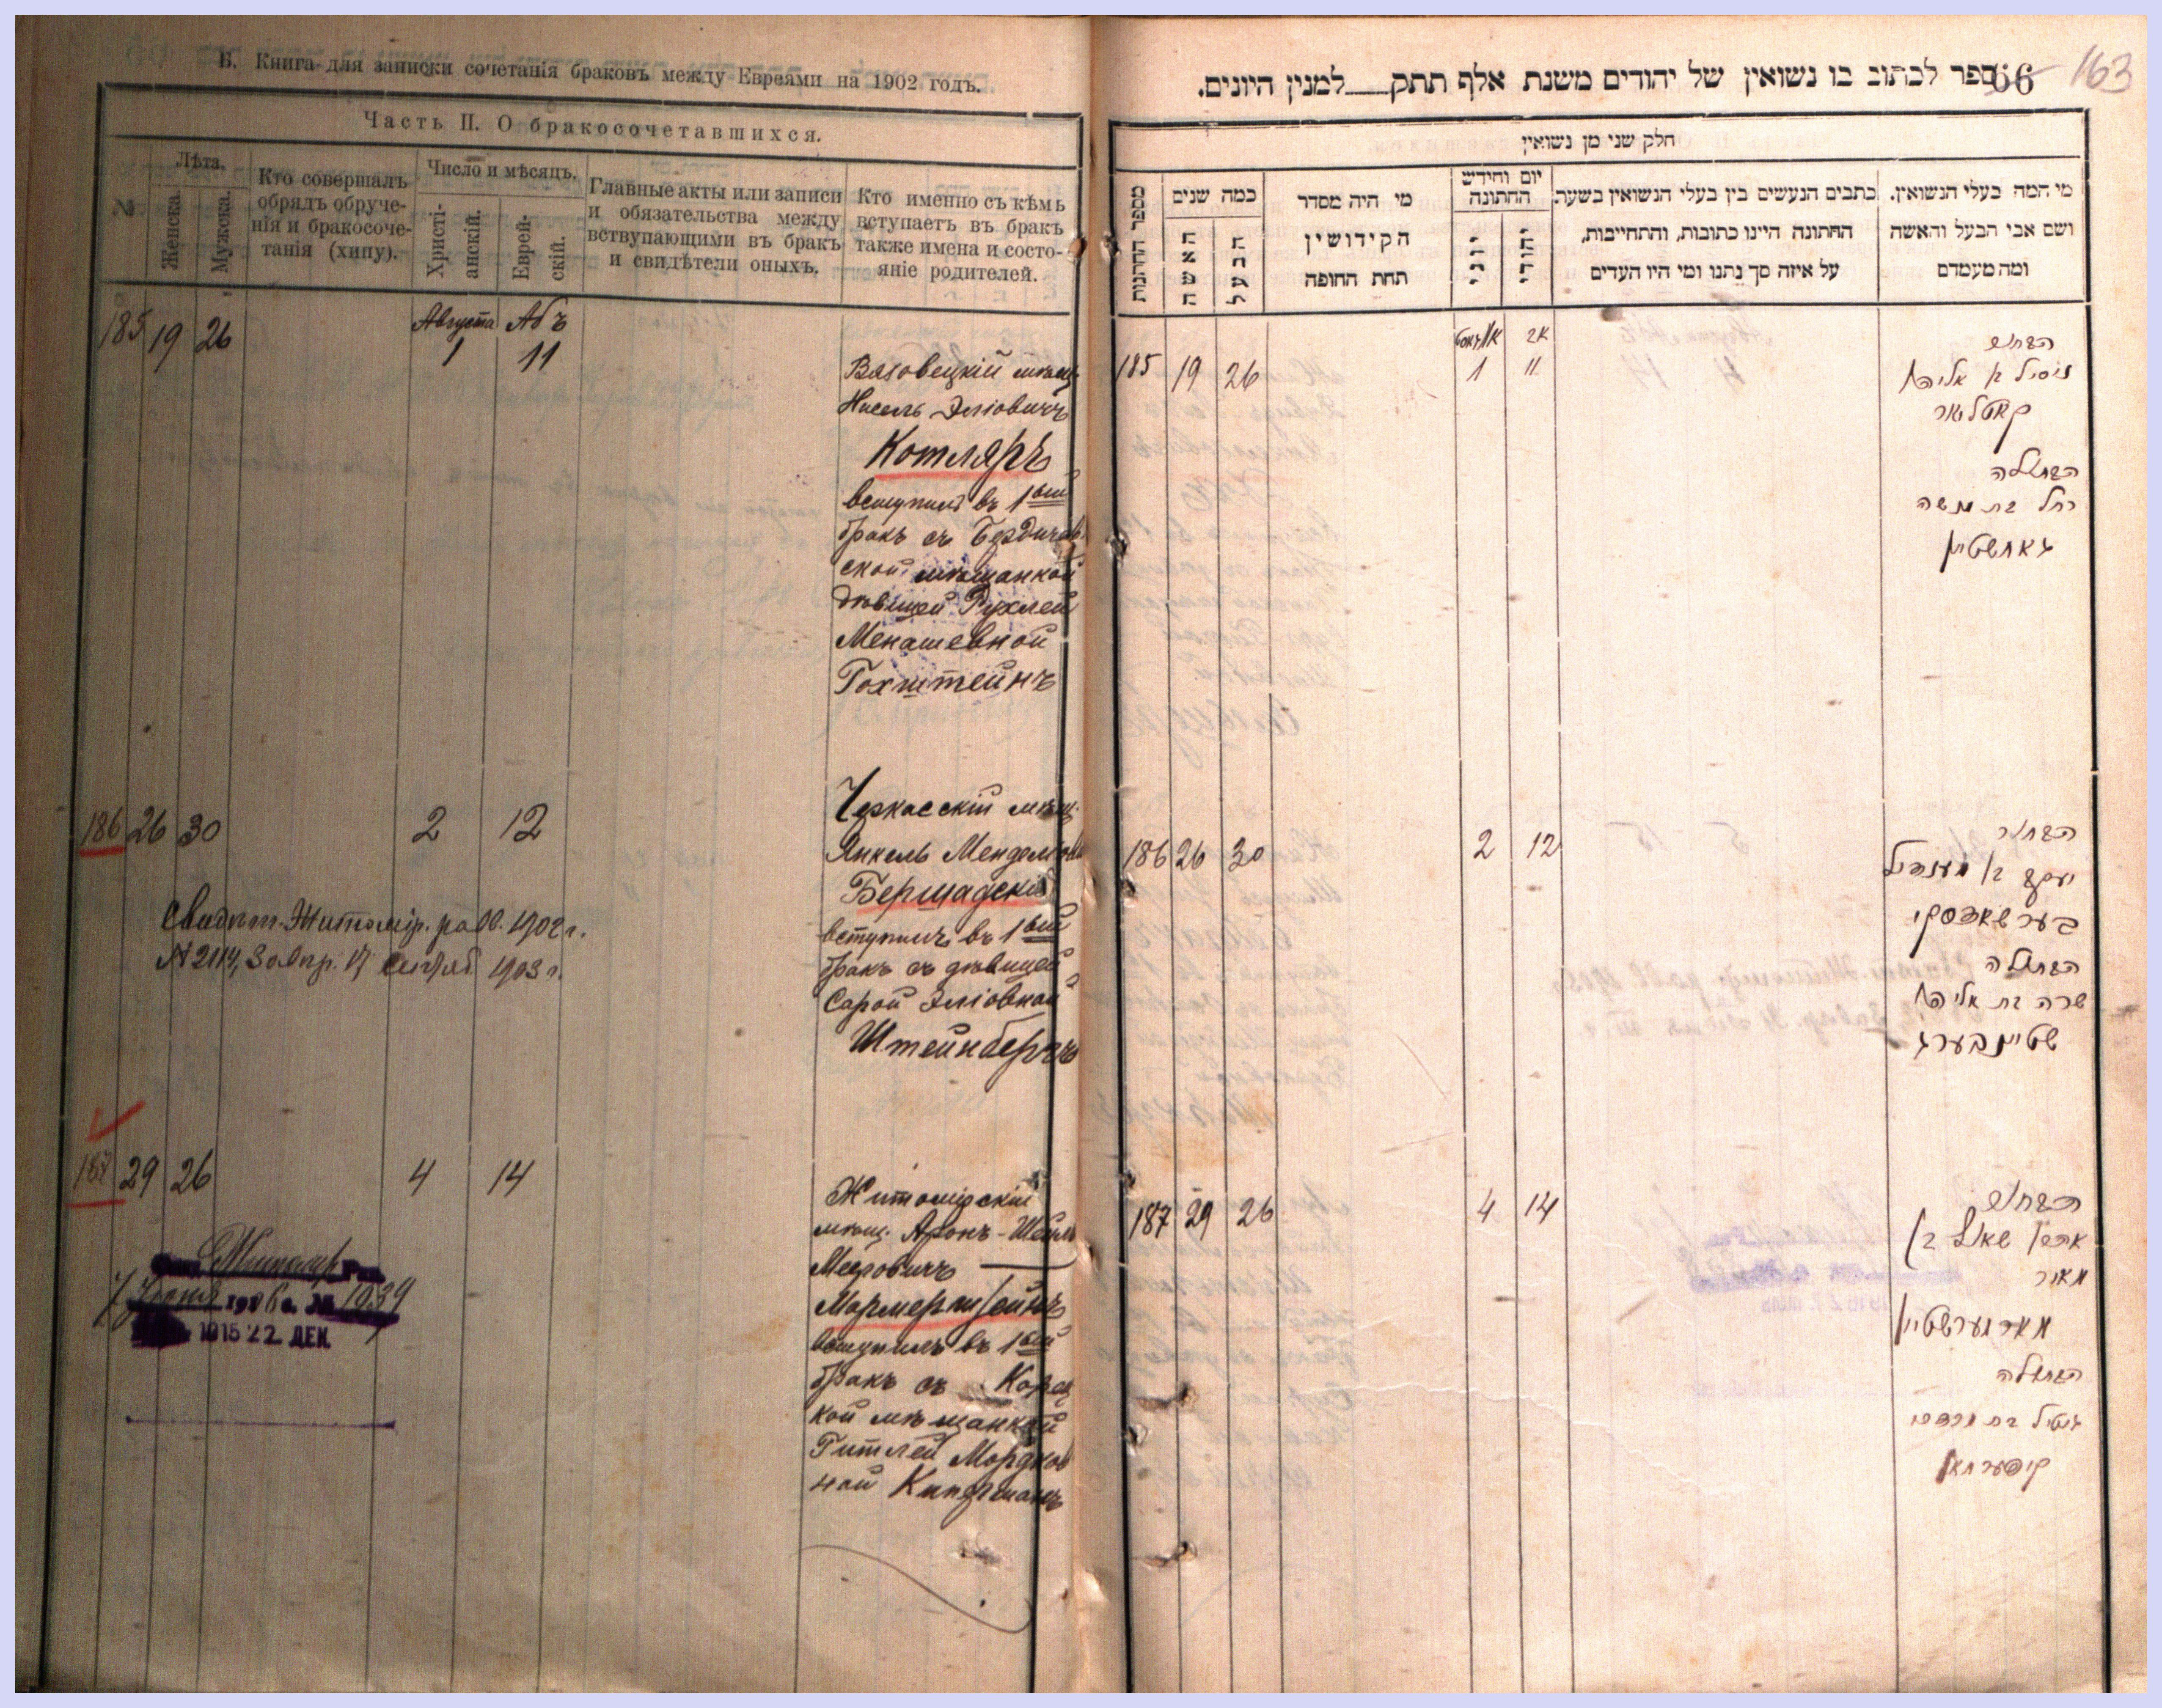 Б. Книга для записки сочетанія браковъ между Евреями на 1902 годъ.
Часть II. О бракосочетавшихся.
№
Лѣта.
Женска.
Мужска.
Кто совершалъ
обрядъ обруче-
нія и бракосоче-
танія (хипу).
Число и мѣсяцъ.
Христі-
анскій.
Еврей-
скій.
Главные акты или записи
и обязательства между
вствупающими въ бракъ
и свидѣтели оныхъ.
Кто именно съ кѣмъ
вступаетъ въ бракъ
также имена и состо-
яніе родителей.
185 19 26 Августа 1 Абъ 11
Вязовецкій мѣщ.
Нисель Эліовичъ
Котляръ
вступилъ въ 1ый
бракъ съ Бердичев
ской мѣщанкой
дѣвицей Рухлей
Менашевной
Гохштейнъ
186 26 30 2 12
Черкасскій мѣщ.
Янкель Менделев
Бершадскій
вступилъ въ 1ый
бракъ съ дѣвицей
Сарой Эліовной
Штейнбергъ
Свидѣт. Житомір. рабб. 1902 г.
N 2114, 30 Апр. 17 1903 г.
187 29 26 4 14
Житомірскій
мѣщ. Аронъ-Шеулъ
Мееровичъ
Мармерштейнъ
вступилъ въ 1ый
бракъ съ Корец
кой мѣщанкой
Гитлей Мордков
ной Киперманъ
1906 г. № 1939
1915 22 ДЕК
66 163
ספר לכתוב בו נשואין של יהודים משנת אלף תתק למנין היונים.
חלק שני מן נשואין
מספר החתונות
כמה שנים
האשה
הבעל
מי היה מסדר
הקידושין
תחת החופה
יום וחידש
החתונה
יוני
יהודי
כתבים הנעשים בין בעלי הנשואין בשעת
החתונה היינו כתובות, והתחייבות,
על איזה סך נתנו ומי היו העדים
מי המה בעלי הנשואין.
ושם אבי הבעל והאשה
ומה מעמדם
185 19 26 אווגוסט 1 אב 11
הבחור
ניסיל בן אליהו
קאטליאר
הבתולה
רחל בת מנשה
גאחשטיין
186 26 30 2 12
הבחור
יעקב בן מענדיל
בערשאדסקי
הבתולה
שרה בת אליהו
שטיינבערג
187 29 26 4 14
הבחור
אהרן שאול בן
מאיר
מארמערשטיין
הבתולה
גיטיל בת מרדכי
קיפערמאן